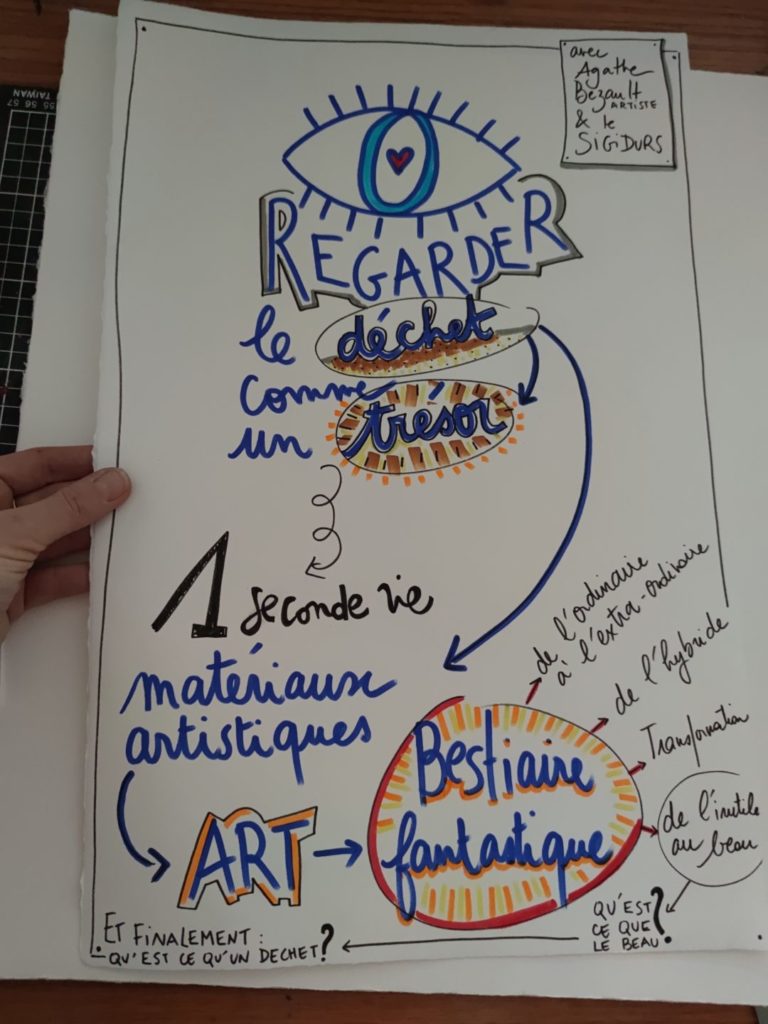 avec
Agathe
Bézault
ARTISTE
& le
SIGIDURS
REGARDER
le déchet
comme
un trésor
1 seconde vie
matériaux
artistiques
ART
Bestiaire
fantastique
de l'ordinaire
à l'extra-ordinaire
de l'hybride
Transformation
de l'inutile
au beau
QU'EST
CE QUE
LE BEAU?
ET FINALEMENT :
QU'EST CE QU'UN DECHET?
TAIWAN
55 56 57